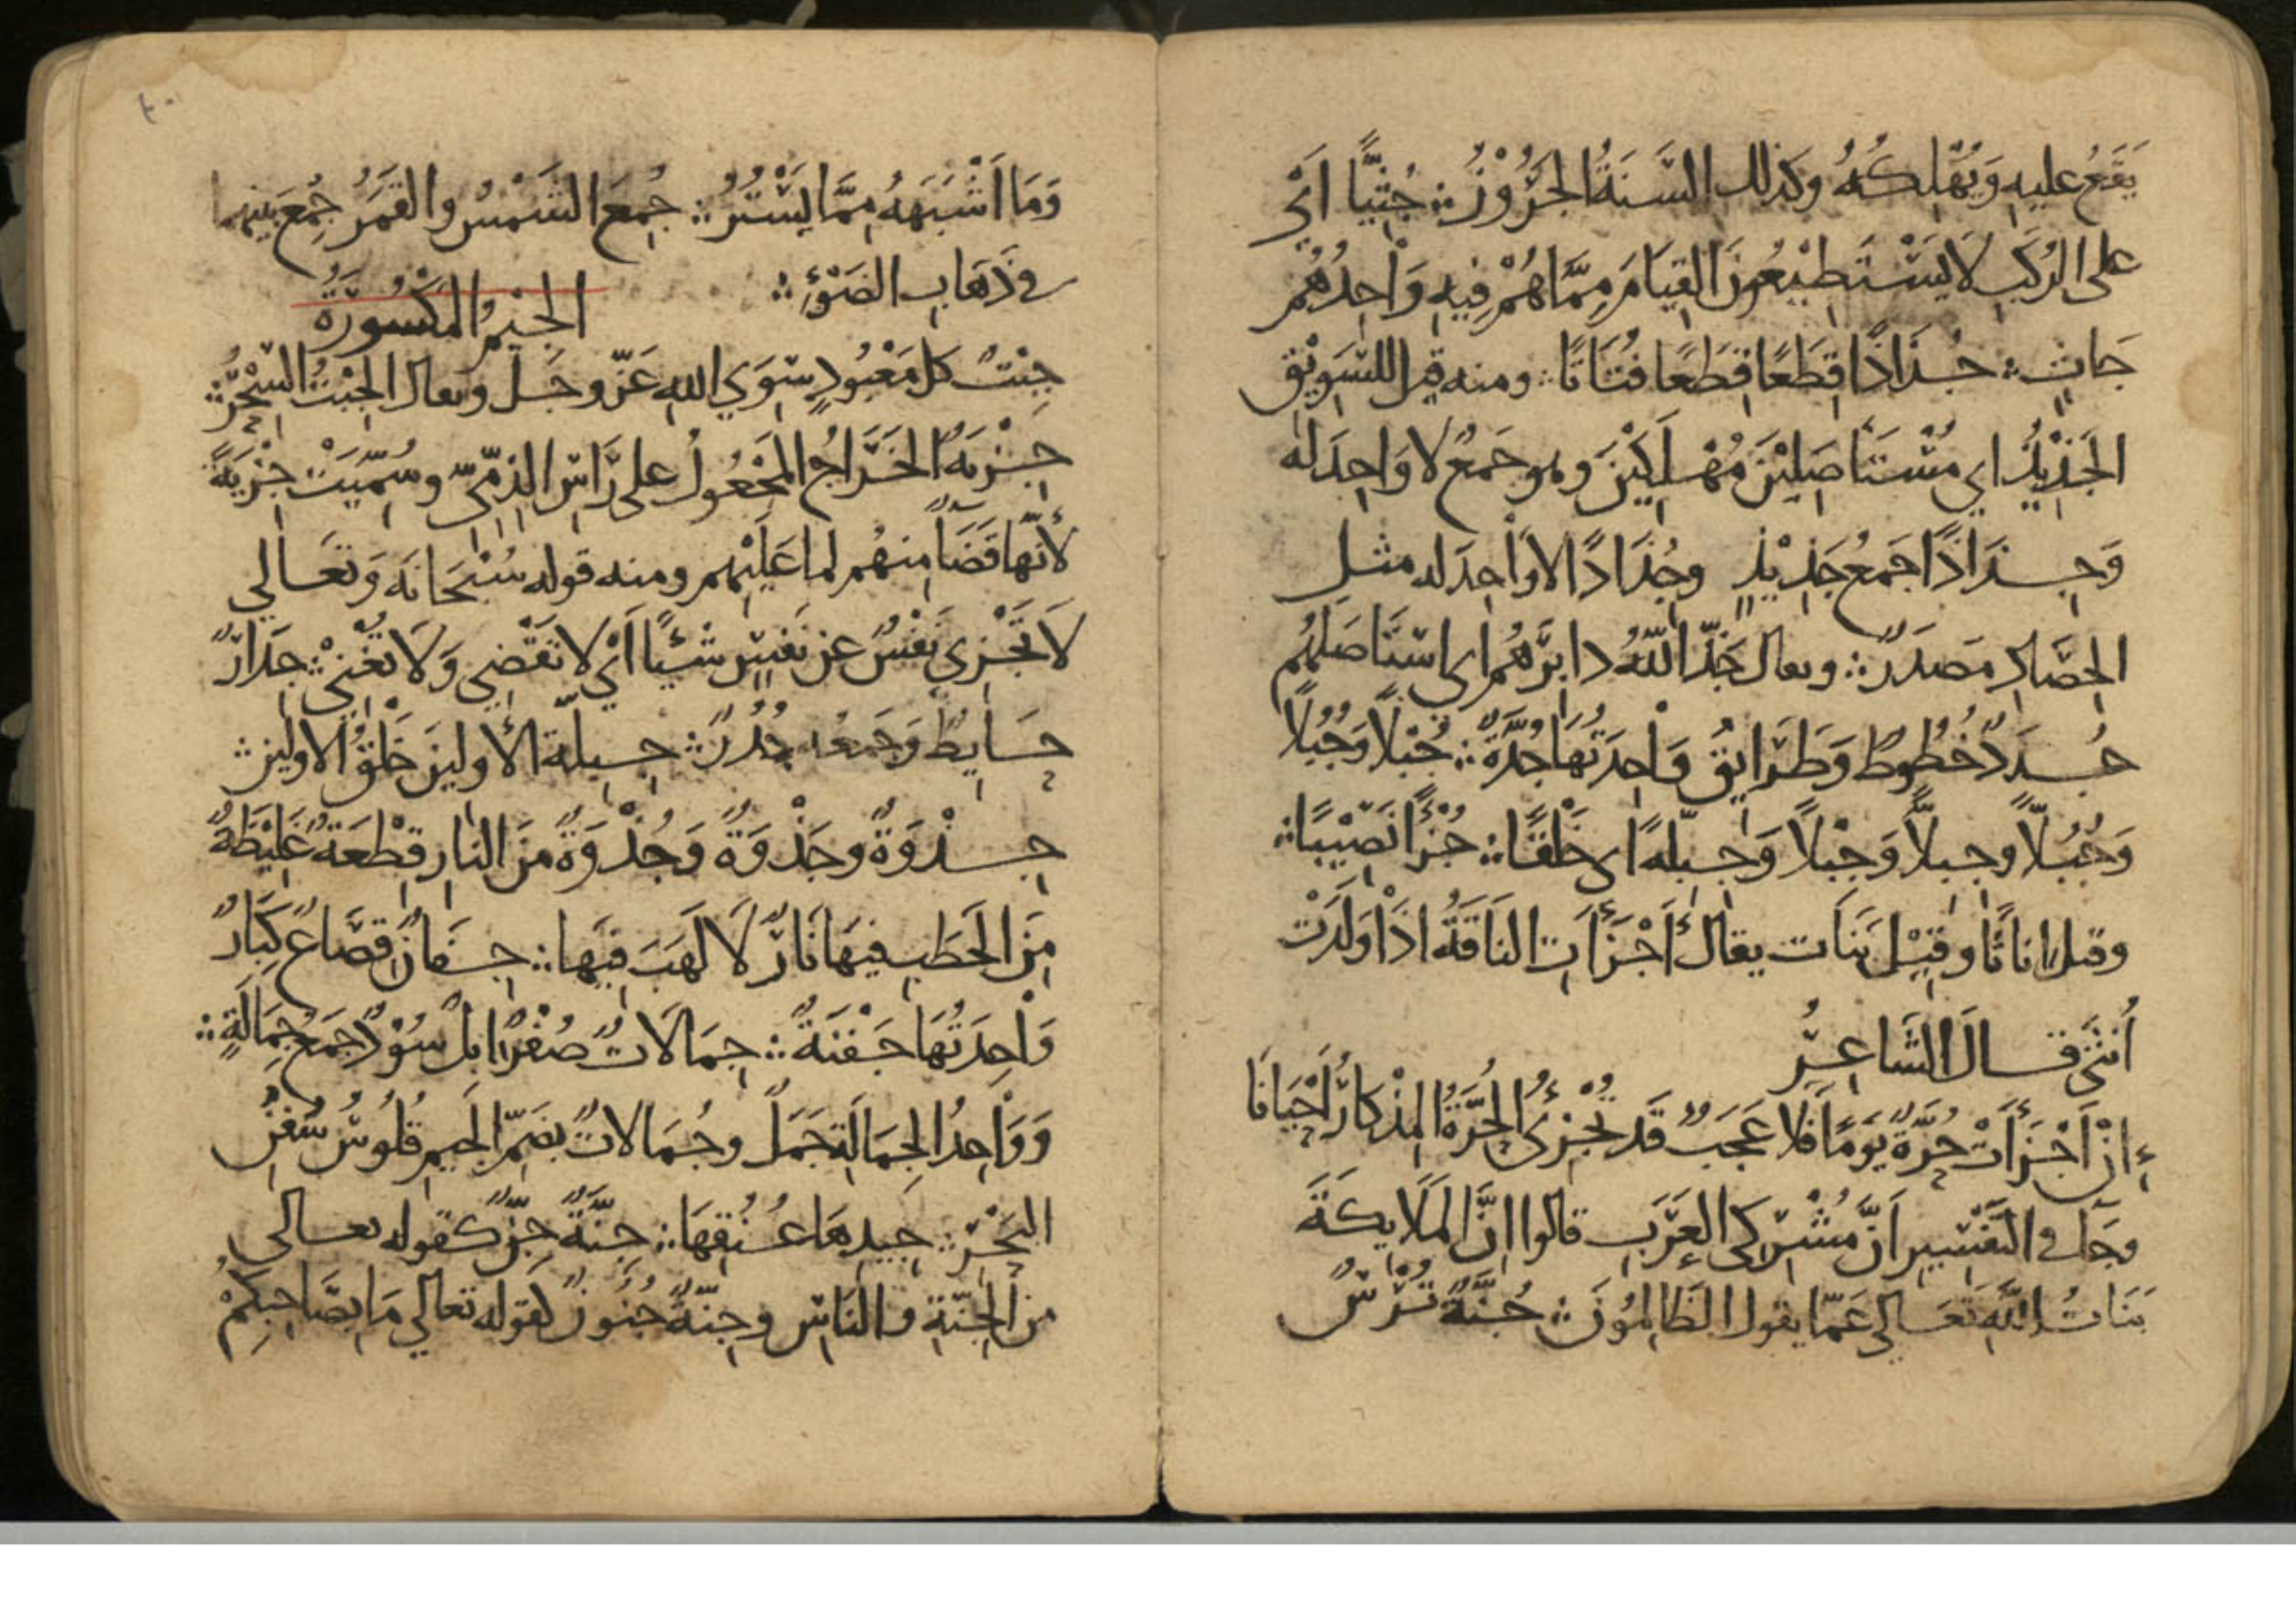 يَقَعُ عليهِ وَيُهْلِكُهُ وكذلك السَّنَةُ الجَرُوْزُ ؞ جُثِيًّا أَيْ
على الرُكَبِ لَا يَسْتَطِيْعُونَ القِيَامَ مِمَّا هُمْ فِيهِ وَاحِدُهُم
جَاثٍ ؞ جُذَاذًا قِطَعًا قِطَعًا فُتَاتًا ؞ ومنه قيل للسَوِيْقِ
الجَذِيْذُ اي مُسْتَأصَلِيْنَ مُهْلَكِيْنَ وهو جَمعٌ لا وَاحِدَ له
وَجِذَاذًا جَمعُ جَذِيْذٍ وجُذَاذًا لا وَاحِدَ له مثل
الحِصَادِ مَصْدَرٌ ؞ ويقال جَذَّ اللّهُ دابِرَهُم اي استَأصَلهُم
جُدَدٌ خُطُوطٌ وَطَرَايِقُ وَاحِدَتُهَا جُدَّةٌ ؞ جُبْلًا وَجُبُلًا
وَجُبُلًّا وجِبِلًّا وَجِبْلًا وَجِبِلَّةً اي خَلْقًا ؞ جُزْأً نَصِيْبًا ؞
وقيل اناثًا وقِيْلَ بَنَات يقالُ أَجْزَأَتِ النَاقَةُ اذَا وَلَدَتْ
أُنثَى قَالَ الشَاعِرُ
إِنْ أَجْزَأَتْ حُرَّةٌ يَوْمًا فَلا عَجَبٌ قَد تُجْزِئُ الحُرَّةُ المِذْكَارُ أَحْيَانَا
وجَآ في التَفْسِيرِ أنَّ مُشْرِكِي العَرَبِ قالوا انَّ المَلَايِكَةَ
بَنَاتُ اللَّهِ تَعَالى عَمّا يقول الظَالِمُونَ ؞ جُنَّةٌ تُرْسٌ
وَمَا أَشْبَهَهُ مِمَّا يَسْتُرُ ؞ جُمِعَ الشَمْسُ والقَمَرُ جُمِعَ بينهما
في ذَهَابِ الضَوْءِ ؞
الجِيْمُ المَكْسُورَةُ
جِبْتٌ كل مَعْبُودٍ سِوَى اللهِ عَزّ وجَلّ ويقال الجِبْتُ السِّحْرُ ؞
جِزْيَةٌ الخَرَاجُ المَجْعُولُ على رَأسِ الذِمِّيّ وسُمِّيَتْ جِزْيَةً
لأَنّهَا قَضَآءً مِنهُم لما عَلَيْهِم ومنه قوله سُبْحَانَه وَتَعَالي
لَا تَجْزِي نَفْسٌ عَن نَفْسٍ شَيْئًا أيْ لا تَقْضِي وَلَا تُغْنِيْ ؞ جِدَارٌ
حَايِطٌ وَجَمعُهُ جُدُرٌ ؞ جِبِلَّة الأولينَ خَلْقُ الاولين ؞
جِذْوَةٌ وجَذْوَةٌ وَجُذْوَةٌ مِنَ النَارِ قِطْعَةٌ غَلِيْظَةٌ
مِنَ الحَطَبِ فيهَا نَارٌ لَا لَهَبَ فِيهَا ؞ جِفَانٌ قِصَاعٌ كِبَارٌ
وَاحِدَتُهَا جَفْنَةٌ ؞ جِمَالَاتٌ صُفْرٌ ابل سُوْدٌ جَمعُ جِمَالَةٍ ؞
وَوَاحِدُ الجِمَالَةِ جَمَلٌ وجُمَالاتٌ بِضَمّ الجِيمِ قُلُوسُ سُفُنِ
البَحْرِ ؞ جِيدِهَا عُنُقِهَا ؞ جِنَّةٌ جِنٌّ كقوله تعالى
من الجِنّةِ والنَاسِ وجِنّةٌ جُنُونٌ كقوله تعالي مَا بِصَاحِبِكُمْ